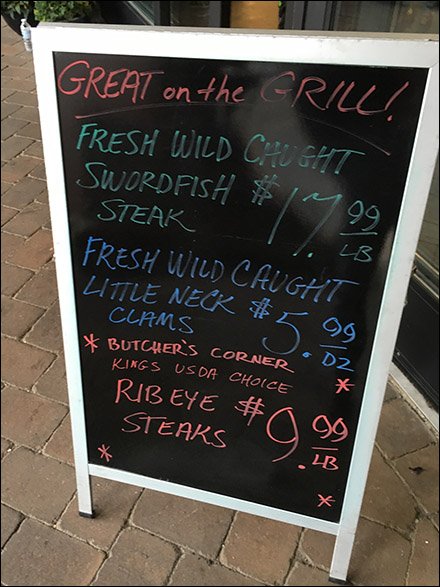 GREAT on the GRILL!
FRESH WILD CAUGHT
SWORDFISH $17.99
STEAK LB
FRESH WILD CAUGHT
LITTLE NECK $5.99
CLAMS DZ
* BUTCHER'S CORNER
KINGS USDA CHOICE *
RIB EYE $9.99
STEAKS LB
* *